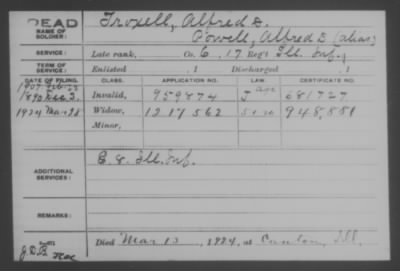 DEAD Troxell, Alfred D.
NAME OF SOLDIER: Powell, Alfred D (alias)
SERVICE: Late rank, Co. G, 17 Reg't Ill. Inf.,
TERM OF SERVICE: Enlisted , 1 Discharged , 1
DATE OF FILING. CLASS. APPLICATION NO. LAW. CERTIFICATE NO.
1907 Feb
1890 Dec 3. Invalid, 959874 J age 681727
1924 Mar 28 Widow, 1217562 948,881
Minor,
ADDITIONAL SERVICES: Ill. Inf.
REMARKS:
Died Mar 13, 1924, at Canton, Ill.
J.D.B.